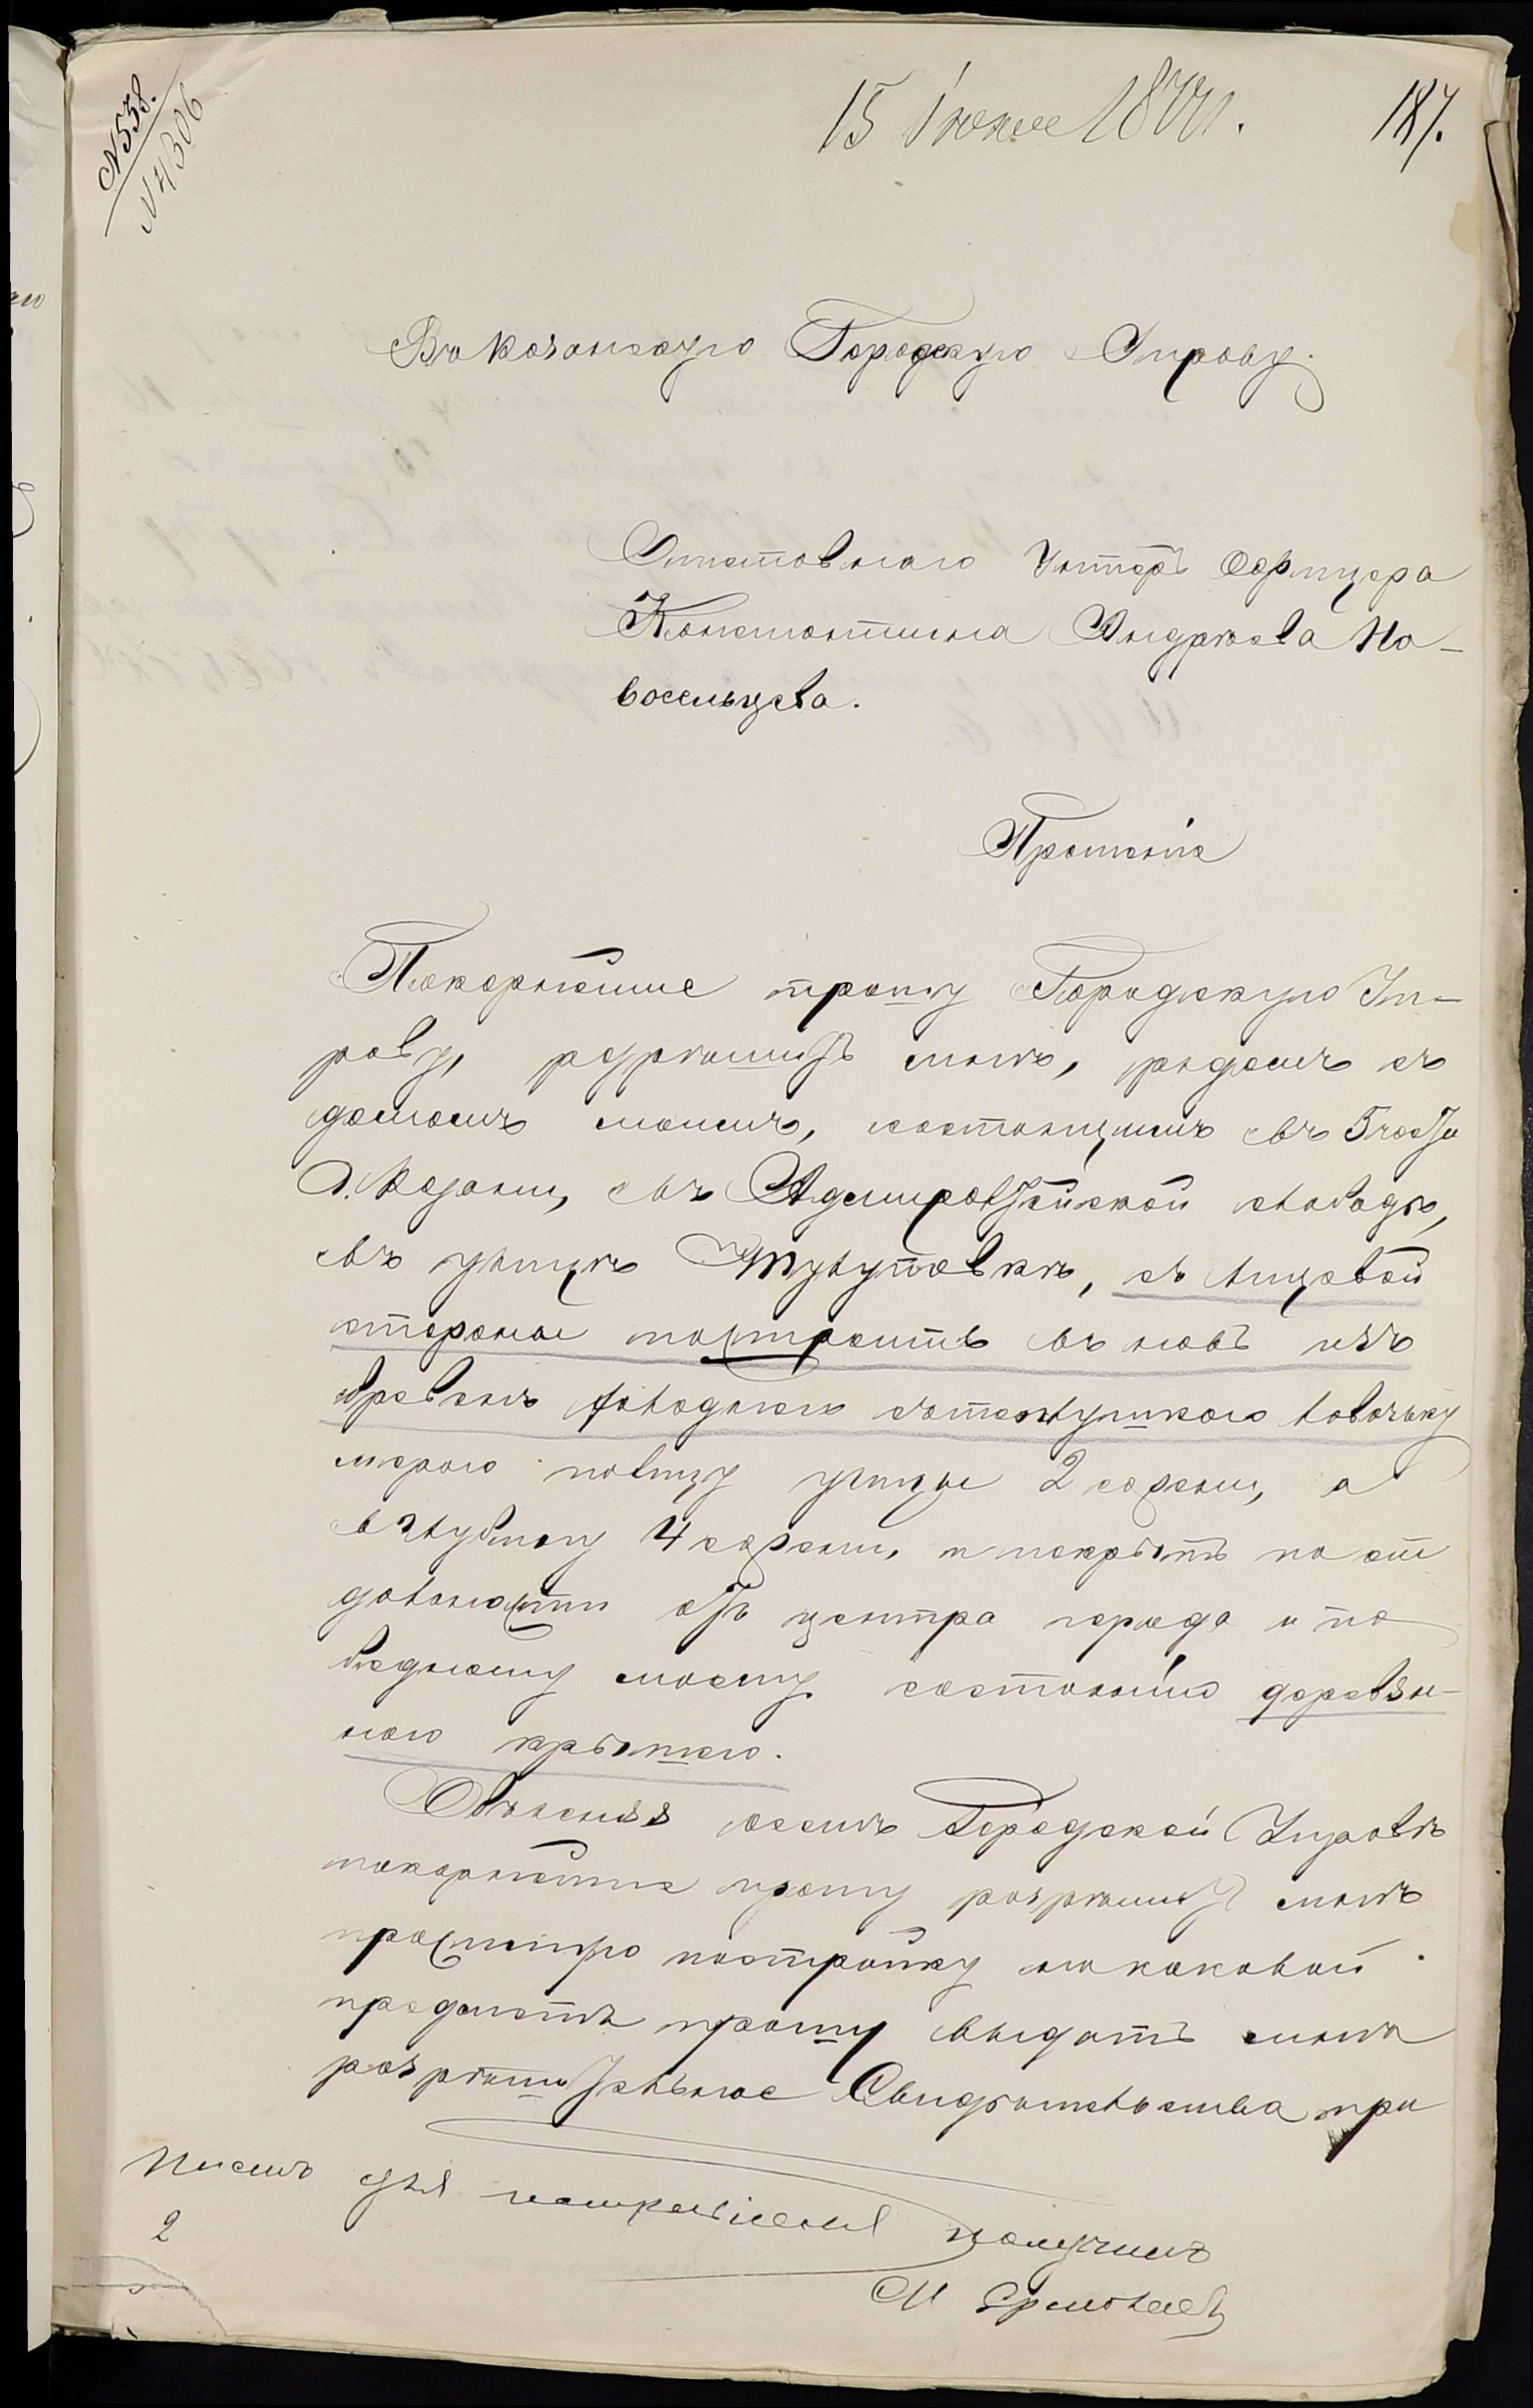 № 538.
№ 4306
15 Іюня 1877 г.
187.
Въ Казанскую Городскую Управу.
Отставного Унтеръ Офицера
Константина Андреева Но-
восельцева.
Прошеніе
Покорнѣйше прошу Городскую Уп-
раву, разрѣшить мнѣ, рядомъ съ
домомъ моимъ, состоящимъ въ 5 части
г. Казани, въ Адмиралтейской слободѣ,
въ улицѣ Тутуповкѣ, съ лицевой
стороны построить въ новь изъ
бревенъ холодную лавочку
мѣрою по лицу улицы 2 сажени, а
въ глубину 4 сажени, и покрыть по от
даленности отъ центра города и по
бедному моему состоянію деревян-
ною крышею.
Объясняя о семъ Городской Управѣ
покорнѣйше прошу разрѣшить мнѣ
просимую постройку на каковой
предметъ прошу выдать мнѣ
разрѣшительное Свидѣтельства при
для получилъ
2
М Ермолаев